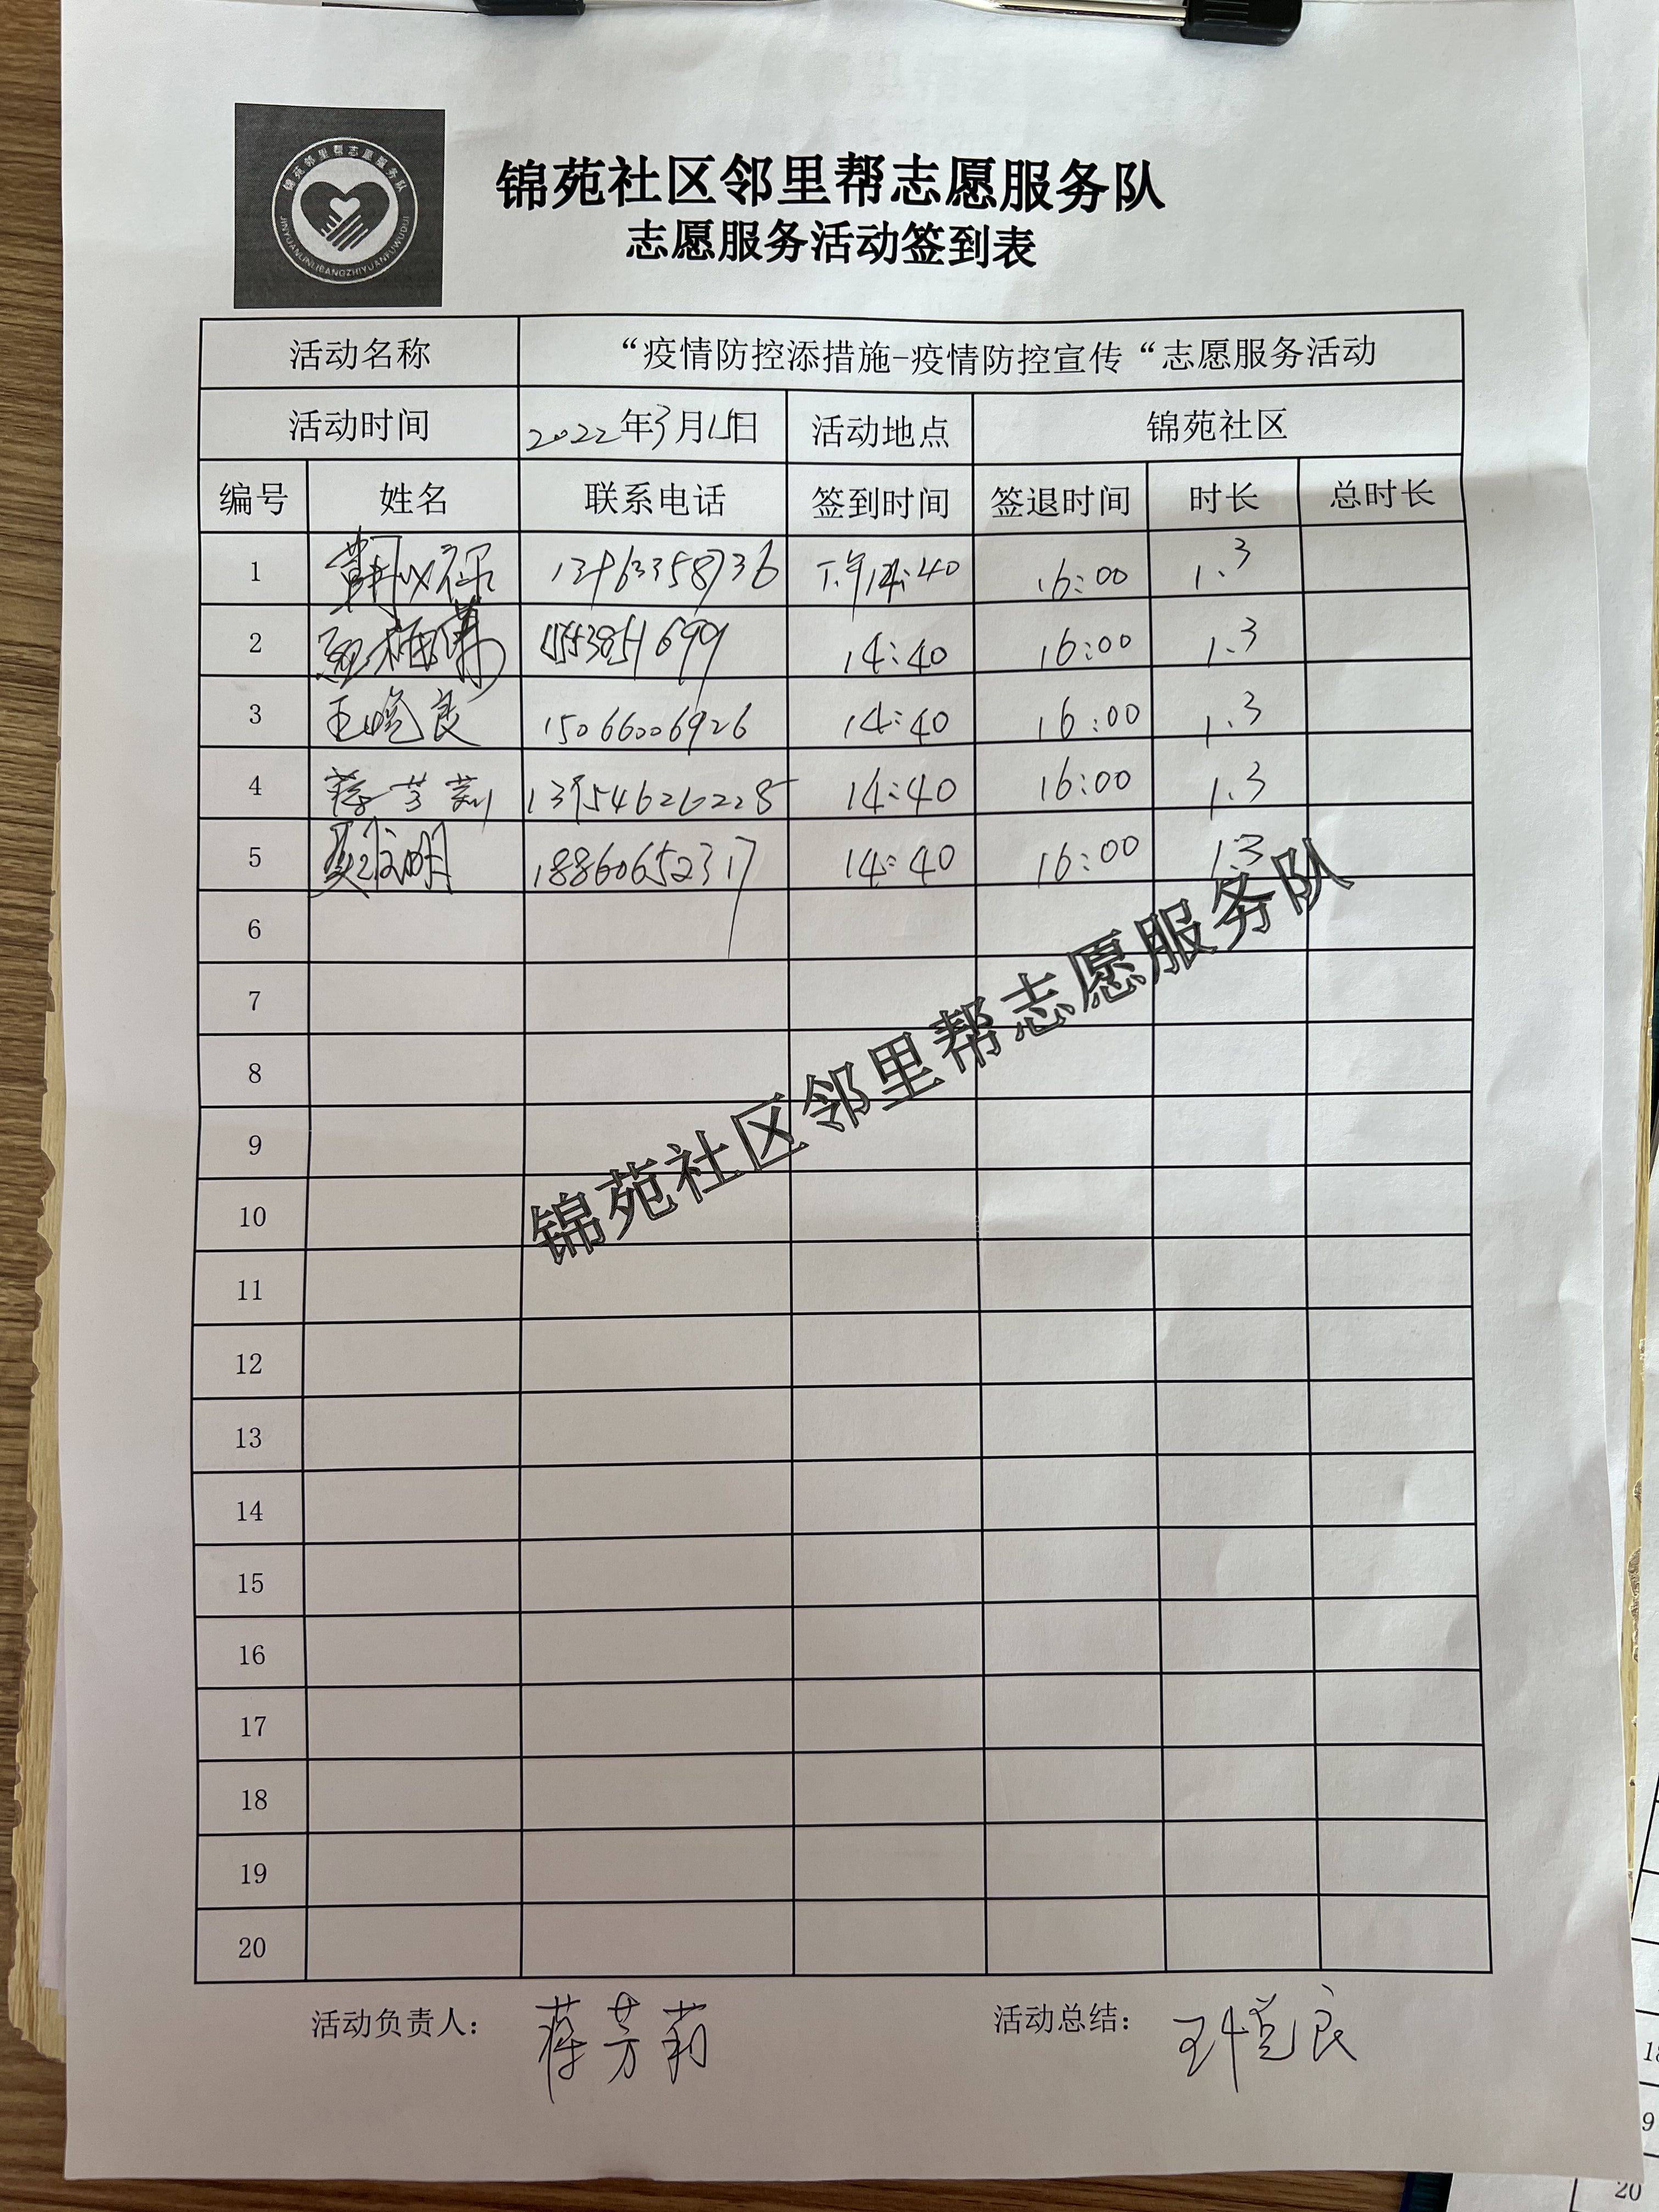 锦苑邻里帮志愿服务队
JINYUANLINLIBANGZHIYUANFUWUDUI
锦苑社区邻里帮志愿服务队
志愿服务活动签到表
活动名称 “疫情防控添措施-疫情防控宣传“志愿服务活动
活动时间 2022年3月15日 活动地点 锦苑社区
编号 姓名 联系电话 签到时间 签退时间 时长 总时长
1 下午14:40 16:00 1.3
2 14:40 16:00 1.3
3 王悦良 15066006926 14:40 16:00 1.3
4 蒋芳莉 14:40 16:00 1.3
5 18860652317 14:40 16:00 1.3
6
7
8
9
10
11
12
13
14
15
16
17
18
19
20
锦苑社区邻里帮志愿服务队
活动负责人： 蒋芳莉 活动总结： 王悦良
18
9
20